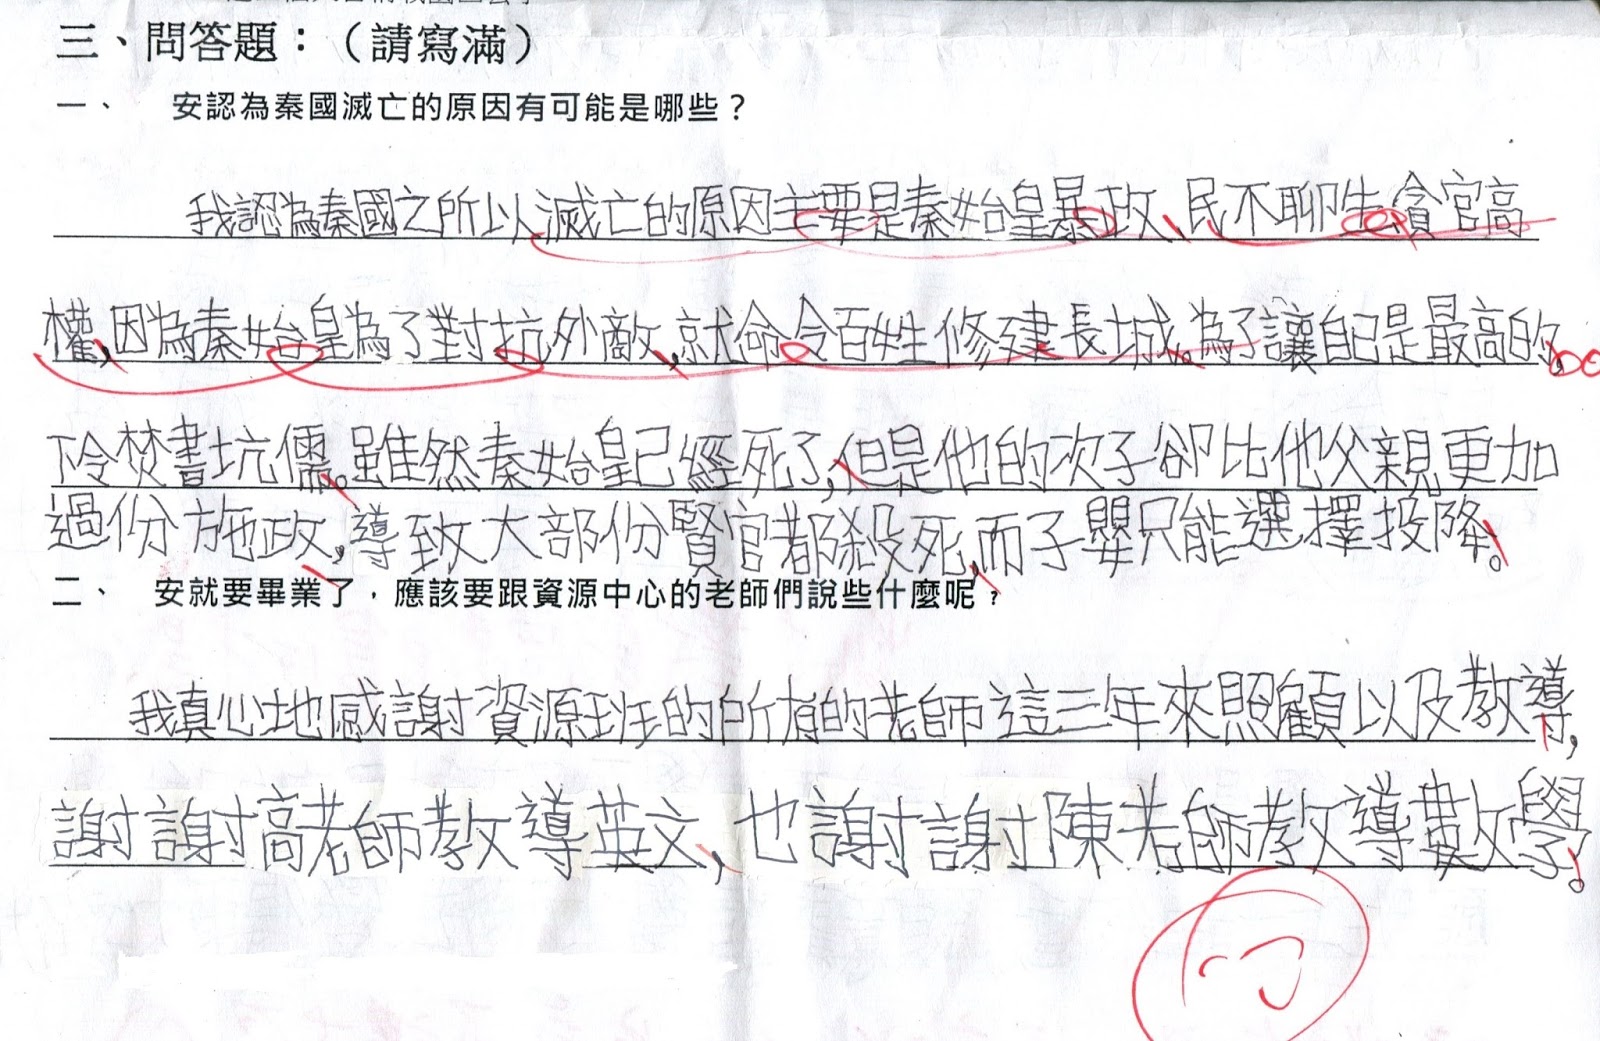 三、問答題：（請寫滿）
一、 安認為秦國滅亡的原因有可能是哪些？
我認為秦國之所以滅亡的原因主要是秦始皇暴政、民不聊生、貪官高
權，因為秦始皇為了對抗外敵，就命令百姓修建長城。為了讓自己是最高的，
下令焚書坑儒。雖然秦始皇已經死了，但是他的次子卻比他父親更加
過份施政，導致大部份賢官都殺死，而子嬰只能選擇投降。
二、 安就要畢業了，應該要跟資源中心的老師們說些什麼呢？
我真心地感謝資源班的所有的老師這三年來照顧以及教導，
謝謝高老師教導英文，也謝謝陳老師教導數學。